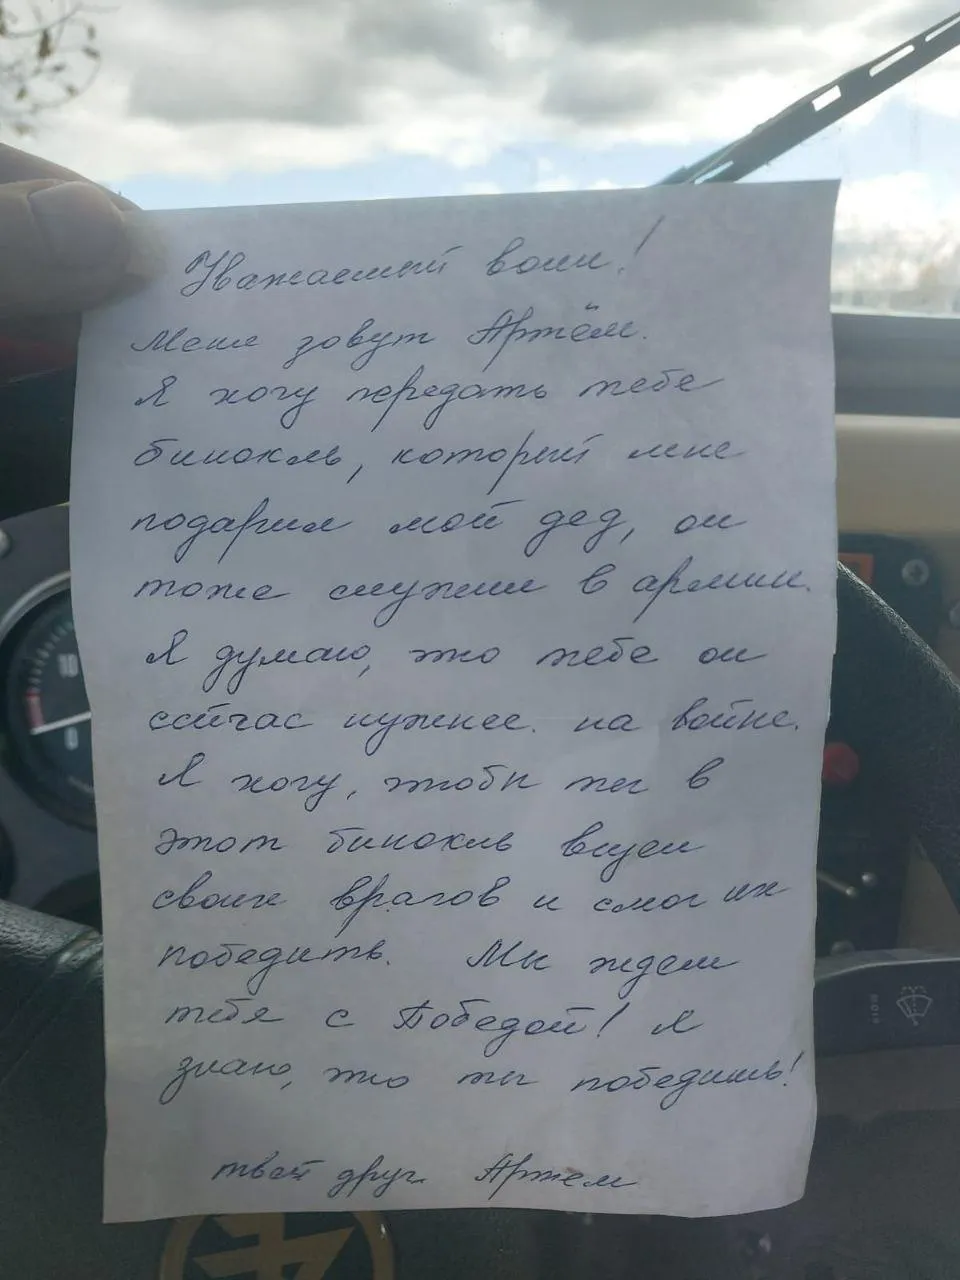 Уважаемый воин!
Меня зовут Артём.
Я хочу передать тебе
бинокль, который мне
подарил мой дед, он
тоже служил в армии.
Я думаю, что тебе он
сейчас нужнее. на войне.
Я хочу, чтобы ты в
этот бинокль видел
своих врагов и смог их
победить. Мы ждем
тебя с Победой! Я
знаю, что ты победишь!
твой друг Артем
10
8